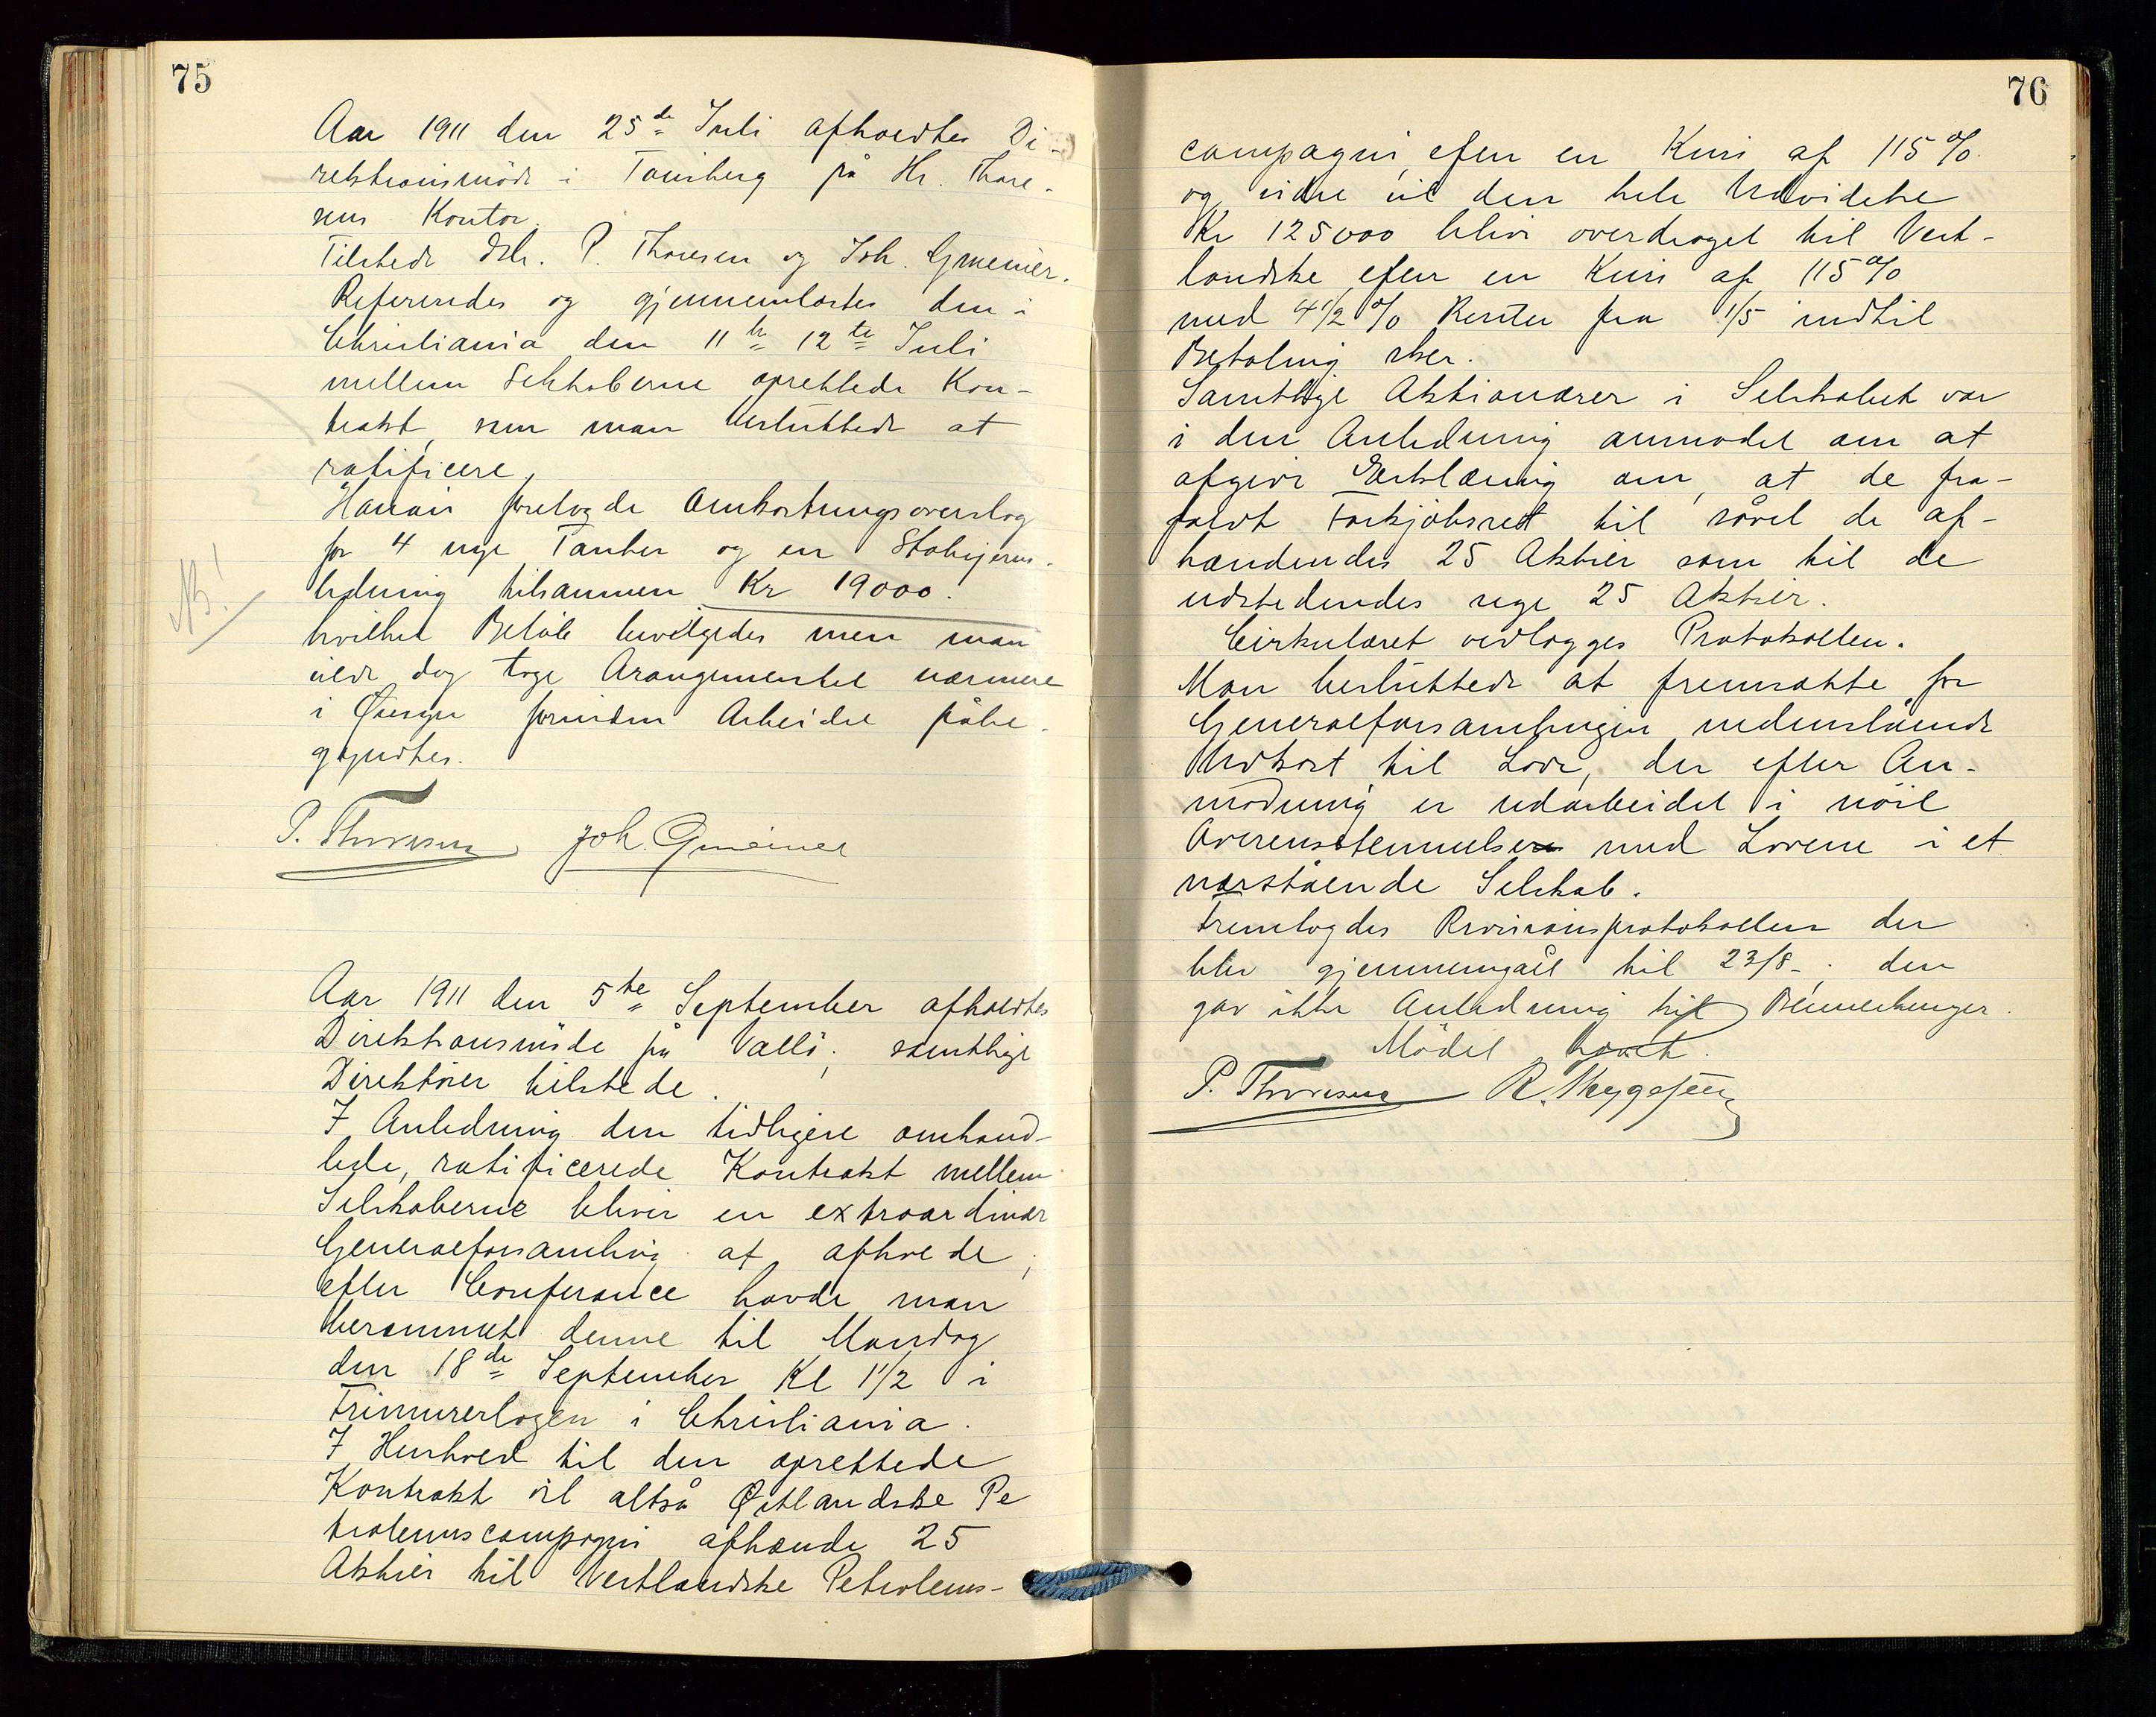 75
Aar 1911 den 25de Juli afholdtes Di-
rektionsmöde i Tönsberg på Hr. Thore-
sens Kontor.
Tilstede DHr. P. Thoresen og Joh. Gmeiner.
Refereredes og gjennemlæstes den i
Christiania den 11te 12te Juli
mellem Selskaberne oprettede Kon-
trakt, som man besluttede at
ratificere.
forelagde Omkostningsoverslag
for 4 nye Tanker og en Stakijerns-
ledning tilsammen Kr 19000.
NB!
hvilket Beløb bevilgedes men man
vilde dog tage Arangementet nærmere
i Øiesyn forinden Arbeidet påbe-
gyndtes.
P. Thoresen Joh. Gmeiner
Aar 1911 den 5te September afholdtes
Direktionsmöde på Vallö; samtlige
Direktörer tilstede.
I Anledning den tidligere omhand-
lede, ratificerede Kontrakt mellem
Selskaberne bliver en extraordinær
Generalforsamling at afholde;
efter Conferance havde man
berammet denne til Mandag
den 18de September Kl 1 1/2 i
Frimurerlogen i Christiania.
I Henhold til den oprettede
Kontrakt vil altså Østlandske Pe
troleumscompagni afhænde 25
Aktier til Vestlandske Petroleums-
76
compagni, efter en Kurs af 115%
og vidre vil den hele Udvidelse
Kr 125000 blive overdraget til Vest-
landske efter en Kurs af 115%
med 4 1/2 % Renter fra 1/5 indtil
Betaling sker.
Samtlige Aktionærer i Selskabet var
i den Anledning anmodet om at
afgive Erklæring om, at de fra-
faldt Forkjøbsret til såvel de af-
hændendes 25 Aktier som til de
udstedendes nye 25 Aktier.
Cirkulæret vedlægges Protokollen.
Man besluttede at fremsætte for
Generalforsamlingen nedenstående
Udkast til Love, der efter An-
modning er udarbeidet i nöie
Overensstemmelse med Lovene i et
nærstående Selskab.
Fremlagdes Revisionsprotokollen der
blev gjennemgået til 23/8-. den
gav ikke Anledning til Bemerkninger.
Mödet hævet.
P. Thoresen R. Thygesen